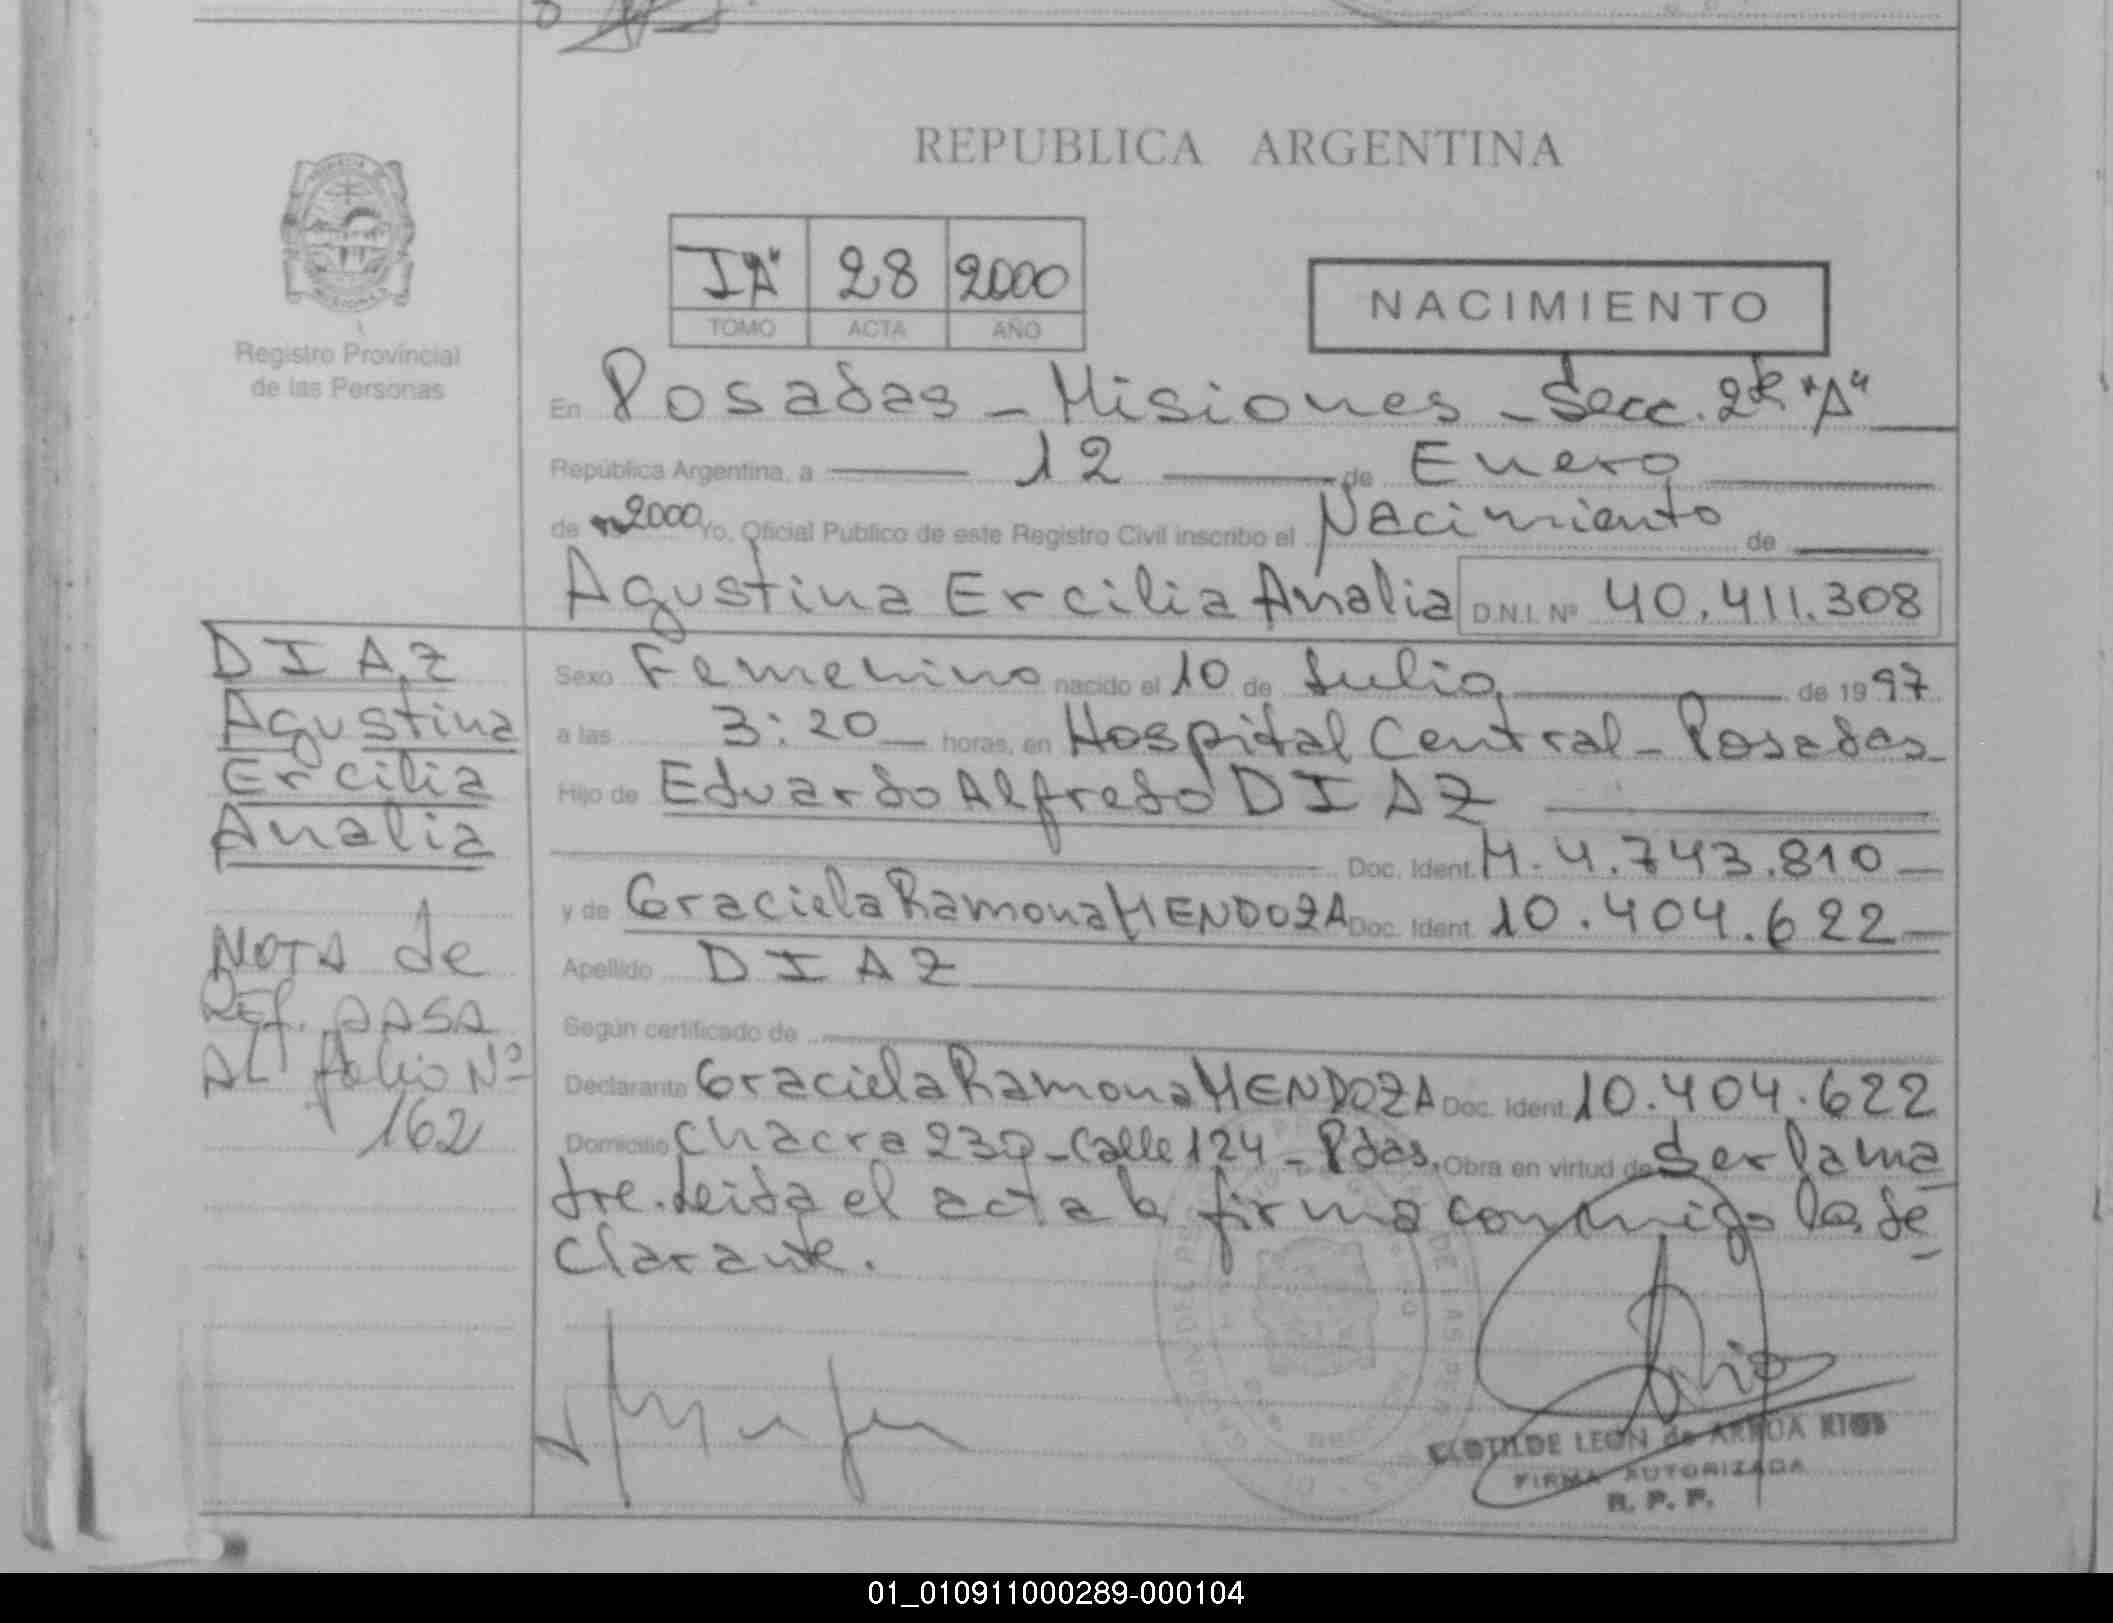 REPUBLICA ARGENTINA
I "A" 28 2000
TOMO ACTA AÑO
NACIMIENTO
Registro Provincial
de las Personas
En Posadas - Misiones - Secc. 2ª "A"
República Argentina, a 12 de Enero
de 2000 Yo, Oficial Publico de este Registro Civil inscribo el Nacimiento de
Agustina Ercilia Analia D.N.I. Nº 40.411.308
DIAZ
Agustina
Ercilia
Analia
NOTA de
REf. PASA
AL folio Nº
162
Sexo Femenino nacido el 10 de Julio de 1997
a las 3:20 horas, en Hospital Central - Posadas
Hijo de Eduardo Alfredo DIAZ
Doc. Ident. M. 4.743.810
y de Graciela Ramona MENDOZA Doc. Ident. 10.404.622
Apellido DIAZ
Según certificado de
Declarante Graciela Ramona MENDOZA Doc. Ident. 10.404.622
Domicilio Chacra 230 - Calle 124 - Pdas. Obra en virtud de Ser la ma
dre. Leida el acta la firma conmigo la de
clarante.
CLOTILDE LEON de ARRUA RIOS
FIRMA AUTORIZADA
R. P. P.
01_010911000289-000104